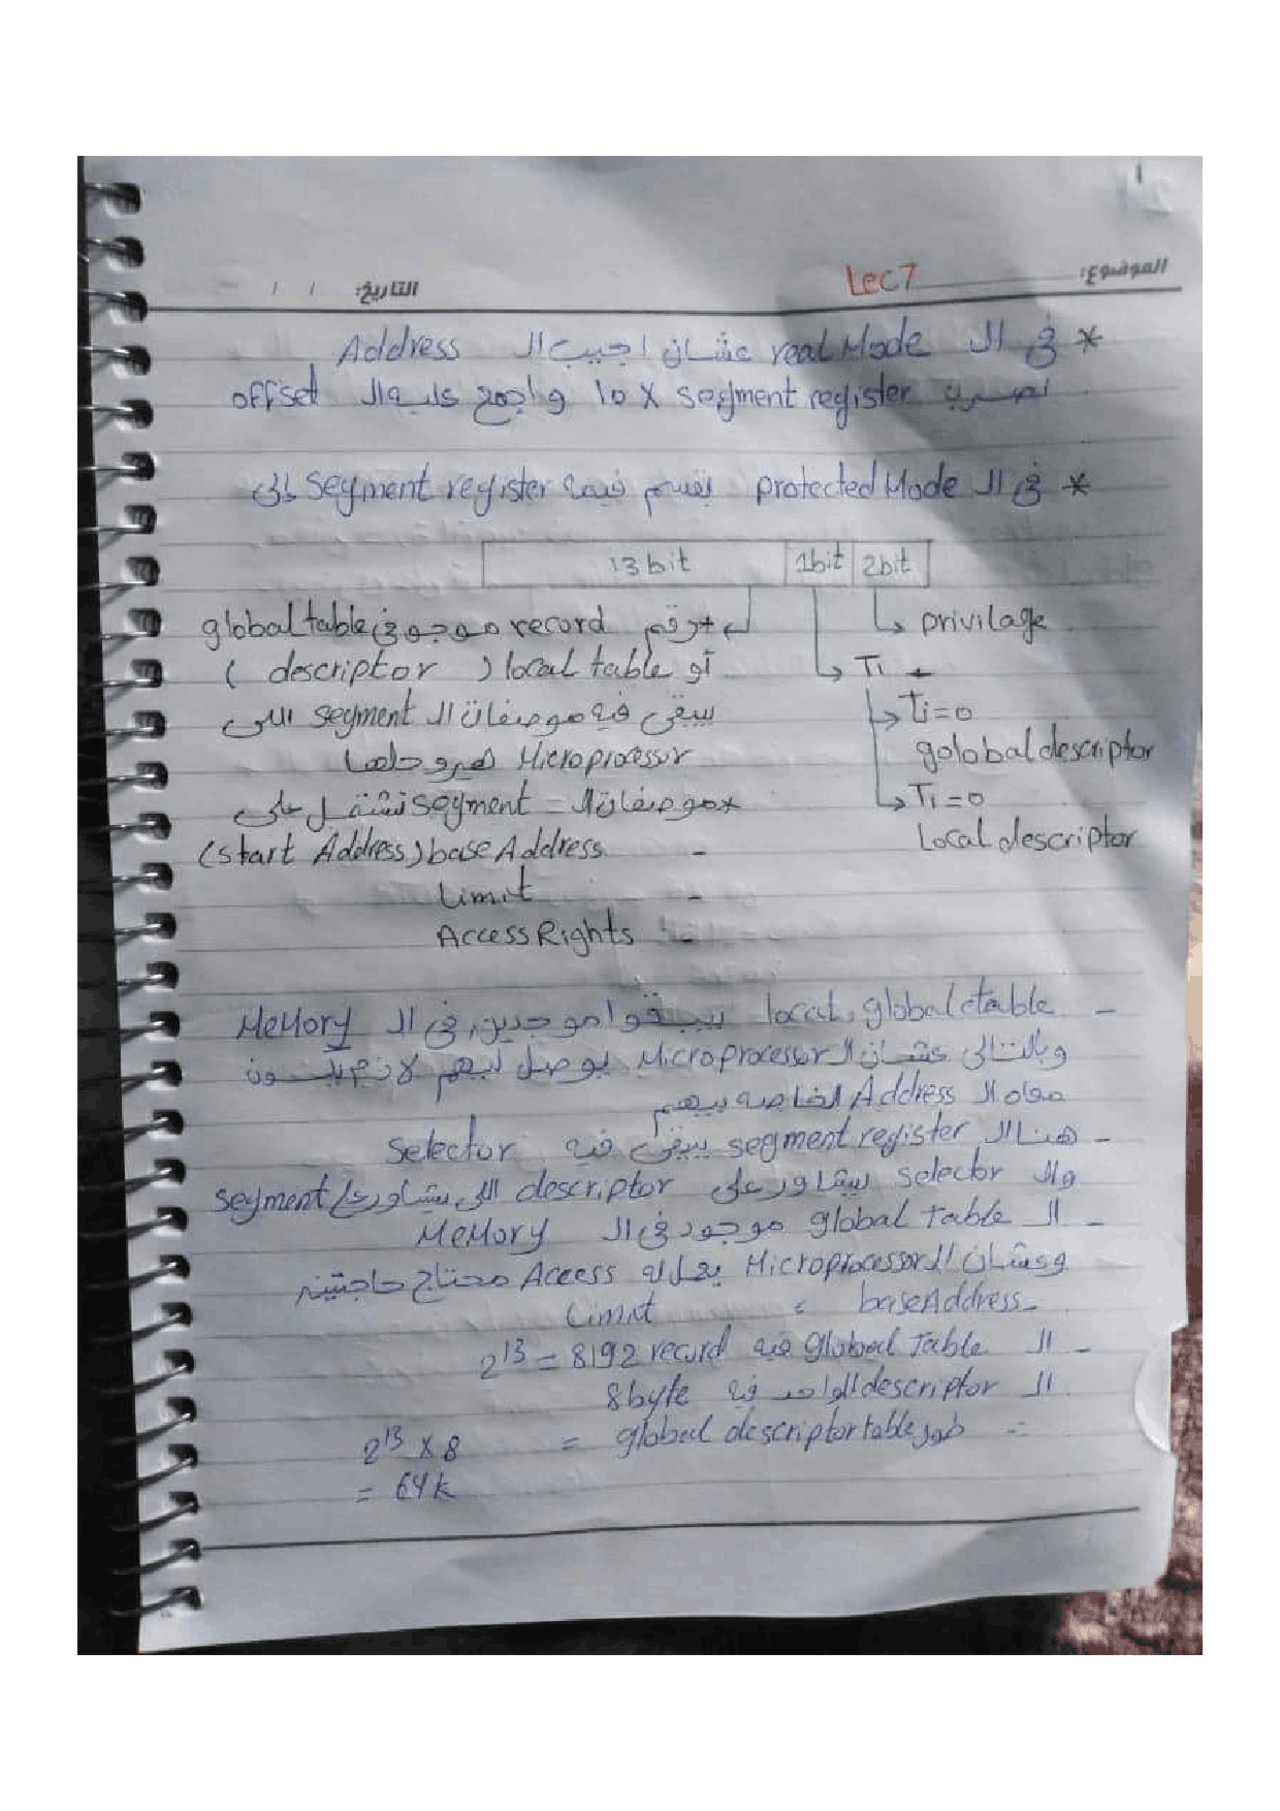 الموضوع: Lec 7
التاريخ: / /
* فى ال real Mode عشان اجيب ال Address
نضرب segment register x 10 واجمع عليه ال offset
* فى ال protected Mode بقسم قيمة segment register إلى
13 bit 1bit 2bit
privilage
Ti
Ti=0
golobal descriptor
Ti=0
Local descriptor
* رقم record موجود فى global table
أو local table ( descriptor )
بيبقى فيه موصفات ال segment اللى
Microprocessor هيروحلها
* موصفات ال segment تشتمل على
- base Address (start Address)
- Limit
- Access Rights
- local, global table بيبقوا موجدين فى ال MeMory
وبالتالى عشان ال Microprocessor يوصل ليهم لازم يكون
معاه ال Address الخاصه بيهم
- هنا ال segment register بيبقى فيه selector
وال selector بيشاور على descriptor اللى بيشاور على segment
- ال global table موجود فى ال MeMory
وعشان ال Microprocessor يعمل له Access محتاج حاجتين
- base Address , Limit
- ال Global Table فيه 2^13 = 8192 record
ال descriptor الواحد فيه 8 byte
global descriptor table = 2^13 x 8
= 64 k